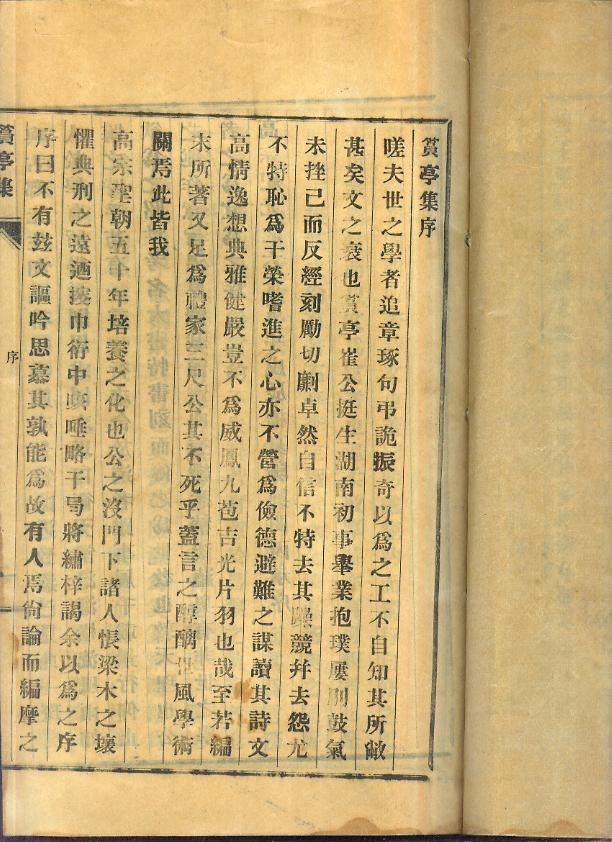 篔亭集序
嗟夫世之學者追章琢句弔詭振奇以爲之工不自知其所敝
甚矣文之衰也篔亭崔公挺生湖南初事舉業抱璞屢刖鼓氣
未挫已而反經刻勵切劘卓然自信不特去其躁競幷去怨尤
不特恥爲干榮嗜進之心亦不營爲儉德避難之謀讀其詩文
高情逸想典雅健嚴豈不爲威鳳九苞吉光片羽也哉至若編
末所著又足爲禮家三尺公其不死乎蓋言之醇醨世風學術
關焉此皆我
高宗聖朝五十年培養之化也公之沒門下諸人悵梁木之壞
懼典刑之遠迺搜巾衍中咳唾略干局將繡梓謁余以爲之序
序曰不有玆文謳吟思慕其孰能爲故有人焉尙論而編摩之
篔亭集
序